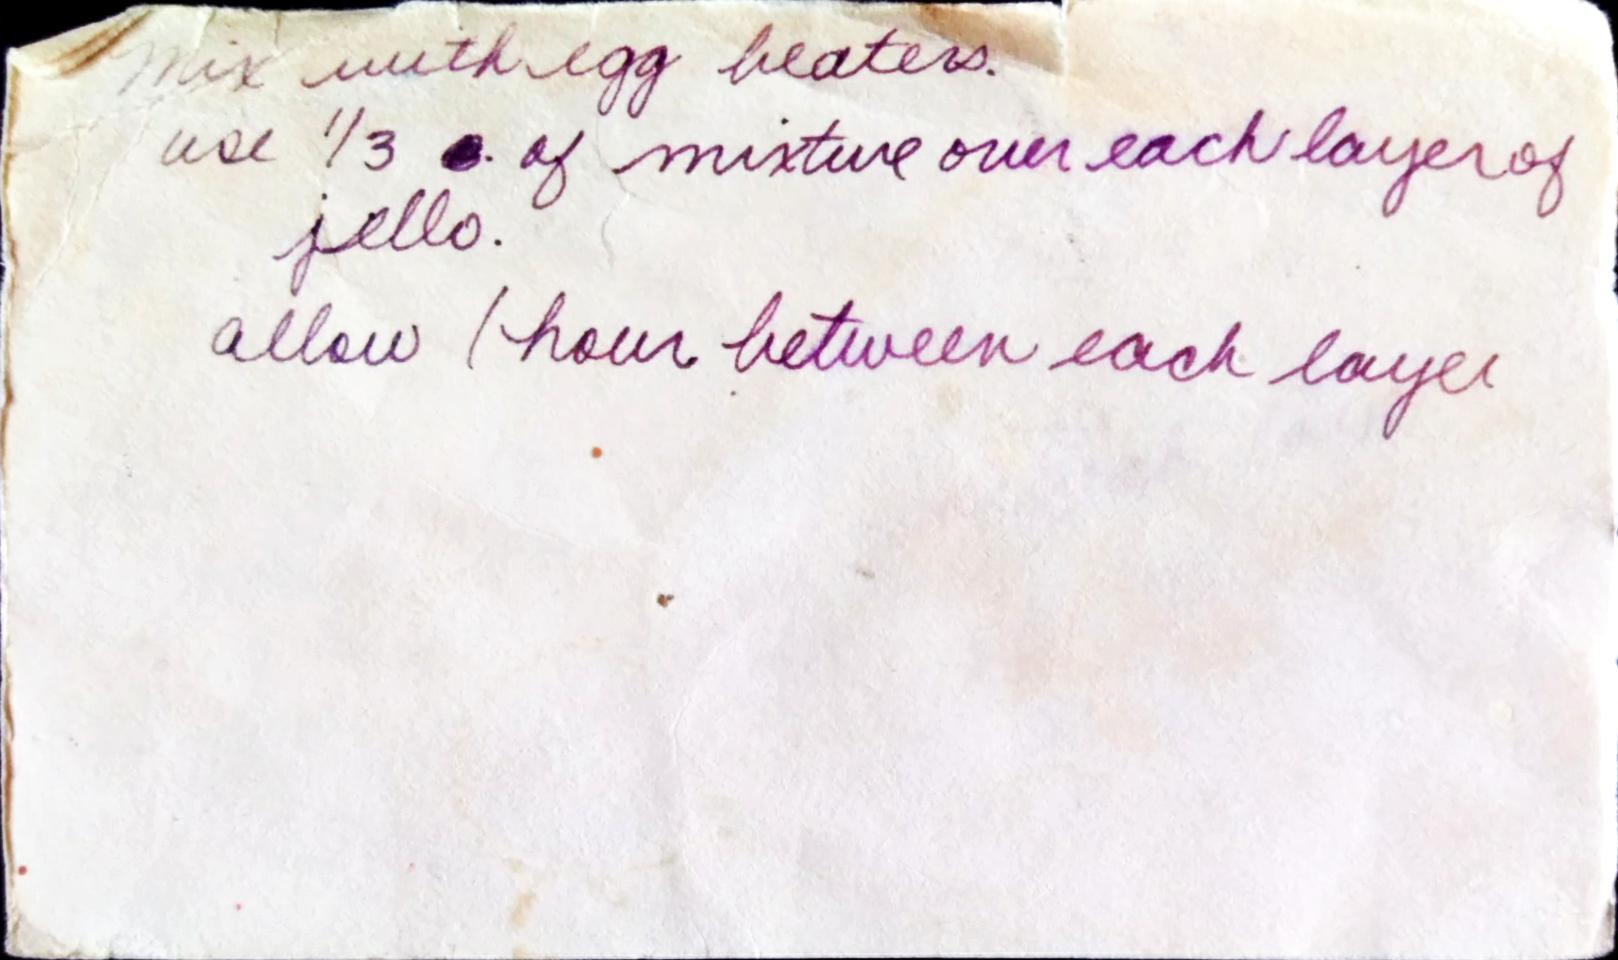 Mix with egg beaters.
use 1/3 c. of mixture over each layer of
jello.
allow 1 hour between each layer